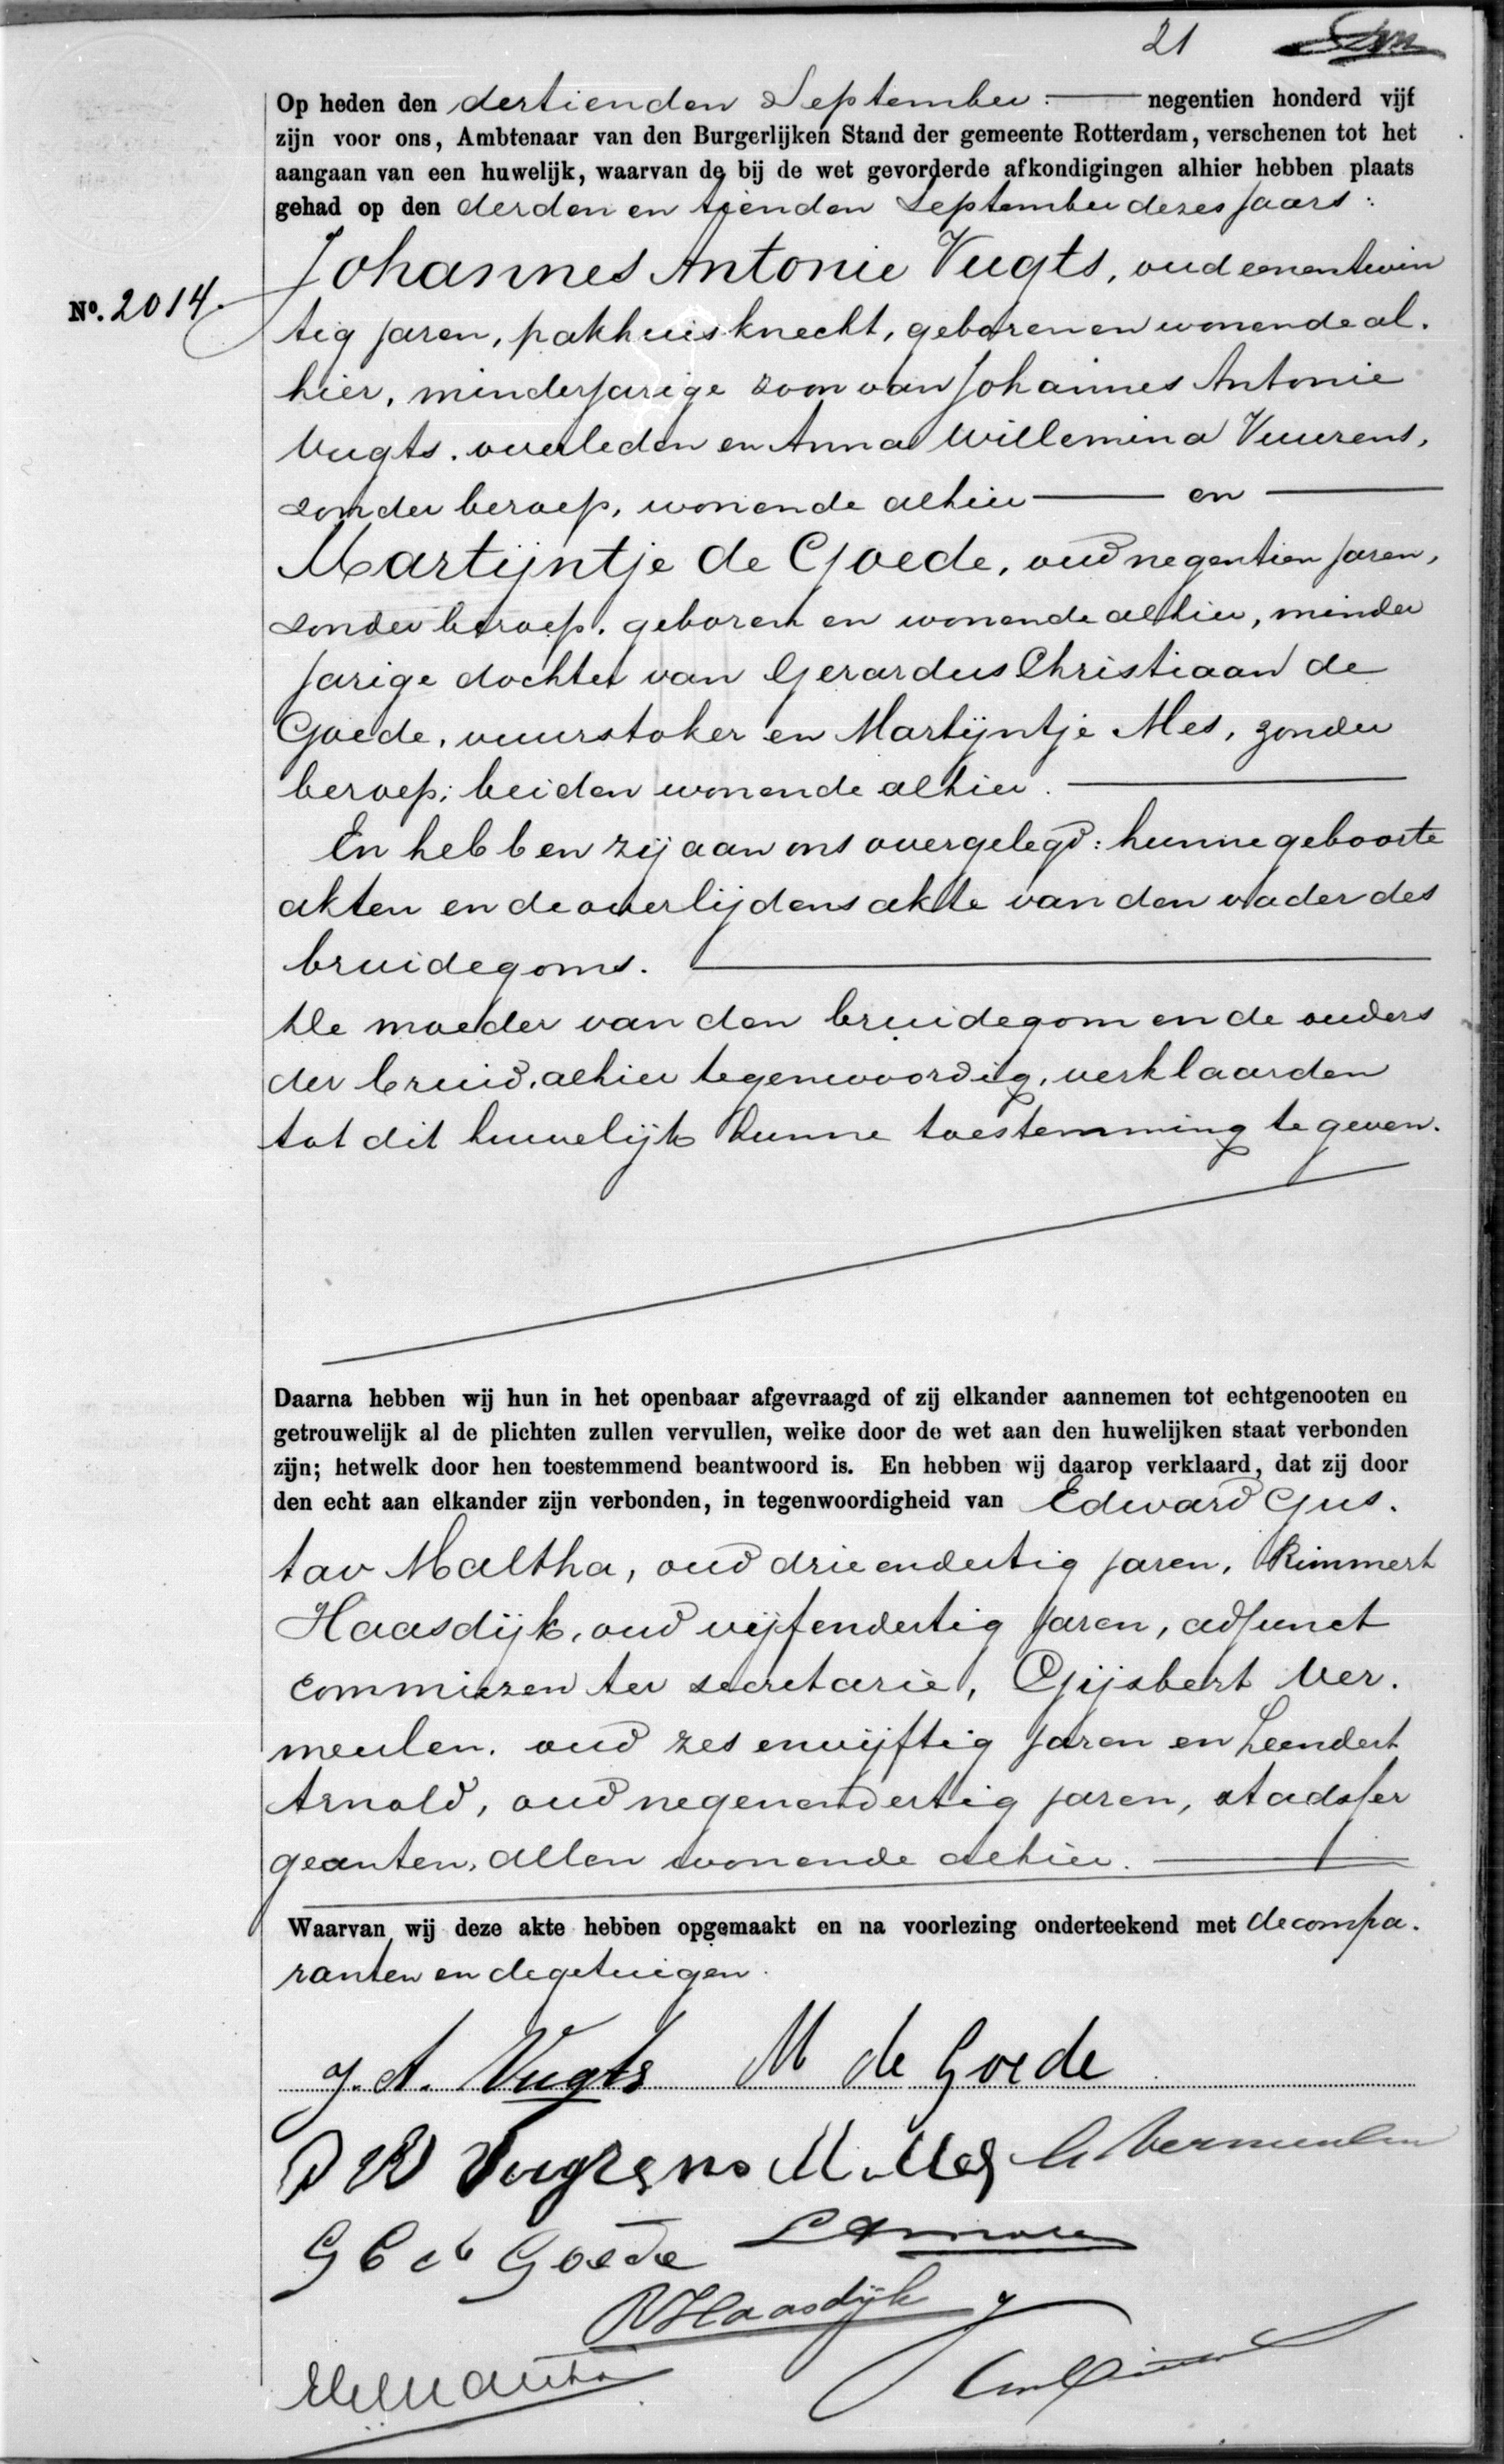 21
Op heden den dertienden September. negentien honderd vijf
zijn voor ons, Ambtenaar van den Burgerlijken Stand der gemeente Rotterdam, verschenen tot het
aangaan van een huwelijk, waarvan de bij de wet gevorderde afkondigingen alhier hebben plaats
gehad op den derden en tienden September dezes jaars:
Johannes Antonie Vugts, oud eenentwin
No. 2014.
tig jaren, pakhuisknecht, geboren en wonende al.
hier, minderjarige zoon van Johannes Antonie
Vugts, overleden en Anna Willemina Vuurens,
zonder beroep, wonende alhier en
Martijntje de Goede, oud negentien jaren,
zonder beroep, geboren en wonende alhier, minder
jarige dochter van Gerardus Christiaan de
Goede, vuurstoker en Martijntje Mes, zonder
beroep; beiden wonende alhier.
En hebben zij aan ons overgelegd: hunne geboorte
akten en de overlijdensakte van den vader des
bruidegoms.
De moeder van den bruidegom en de ouders
der bruid, alhier tegenwoordig, verklaarden
tot dit huwelijk hunne toestemming te geven.
Daarna hebben wij hun in het openbaar afgevraagd of zij elkander aannemen tot echtgenooten en
getrouwelijk al de plichten zullen vervullen, welke door de wet aan den huwelijken staat verbonden
zijn; hetwelk door hen toestemmend beantwoord is. En hebben wij daarop verklaard, dat zij door
den echt aan elkander zijn verbonden, in tegenwoordigheid van Edward Gus.
tav Maltha, oud drieendertig jaren, Rimmert
Haasdijk, oud vijfendertig jaren, adjunct
commiezen ter secretarie, Gijsbert Ver.
meulen, oud zesenvijftig jaren en Leendert
Arnold, oud negenendertig jaren, stadsser
geanten, allen wonende alhier.
Waarvan wij deze akte hebben opgemaakt en na voorlezing onderteekend met de compa.
ranten en de getuigen.
J. A. Vugts M de Goede
M. Mes G. Vermeulen
G C de Goede
R Haasdijk